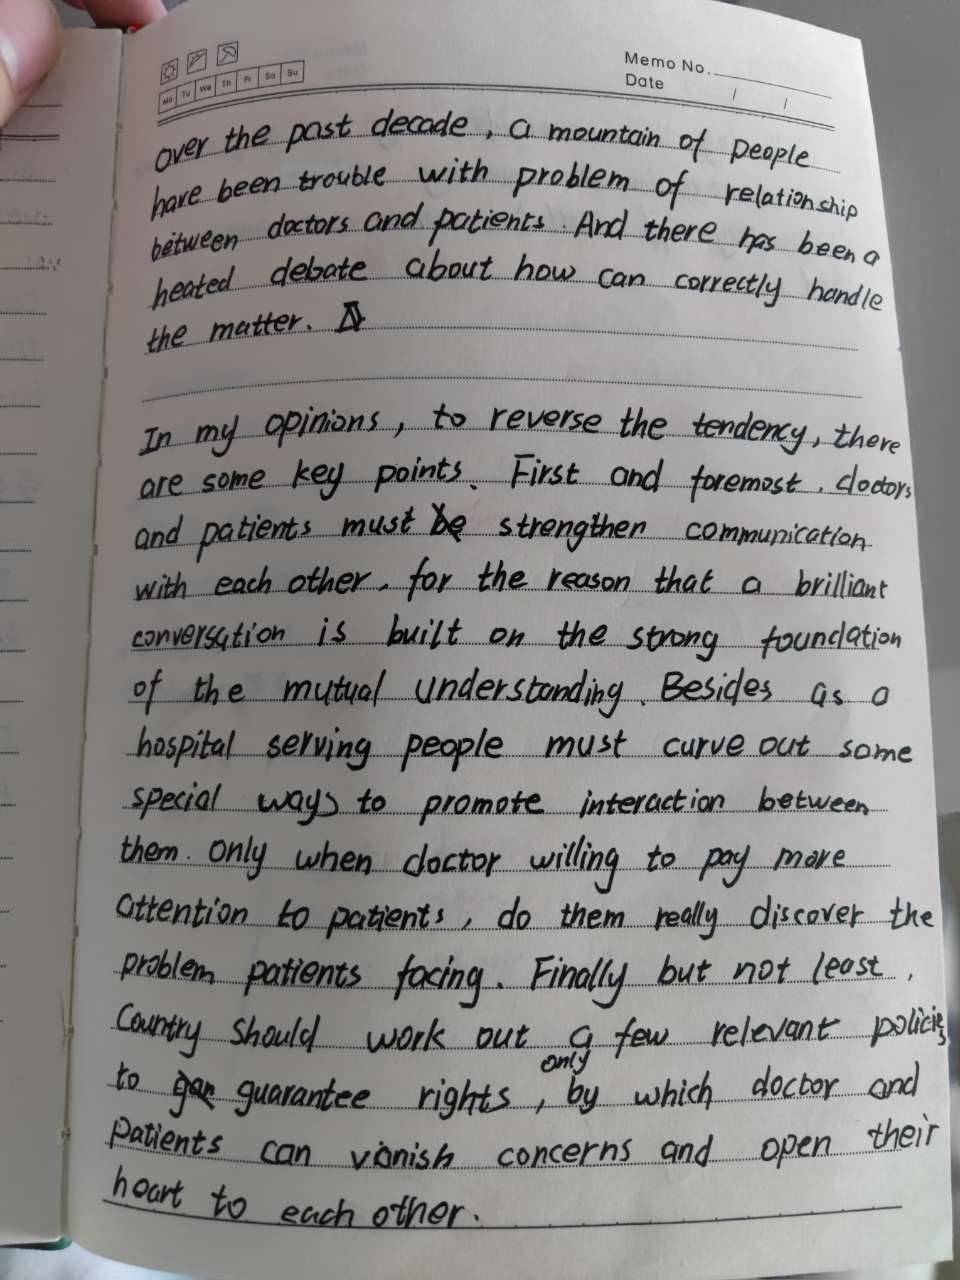 Memo No.
Mo Tu We Th Fr Sa Su
Date / /
over the past decade, a mountain of people
have been trouble with problem of relationship
between doctors and patients. And there has been a
heated debate about how can correctly handle
the matter.
In my opinions, to reverse the tendency, there
are some key points. First and foremost, doctors
and patients must be strengthen communication
with each other, for the reason that a brilliant
conversation is built on the strong foundation
of the mutual understanding. Besides as a
hospital serving people must curve out some
special ways to promote interaction between
them. Only when doctor willing to pay more
attention to patients, do them really discover the
problem patients facing. Finally but not least,
Country should work out a few relevant policies
to guarantee rights, only by which doctor and
patients can vanish concerns and open their
heart to each other.